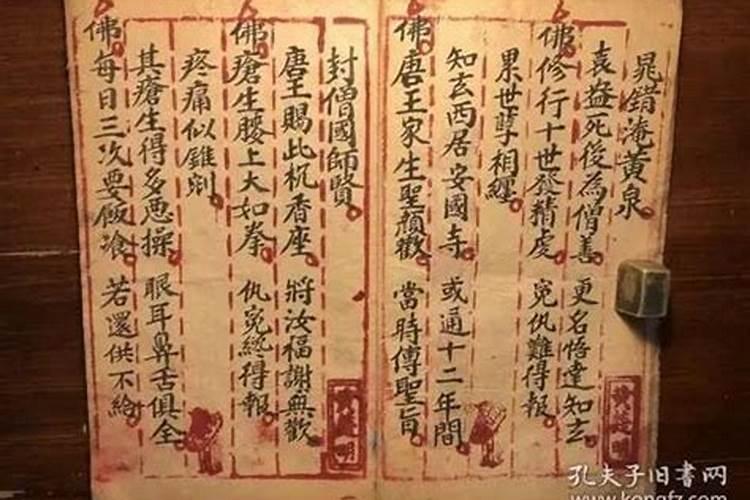 晁錯淹黃泉
袁益死後為僧善 更名悟達知玄
佛修行十世發精虔 冤仇難得報
累世孽相纏
知玄西居安國寺 或通十二年間
佛唐王家生聖顏歡 當時傳聖旨
封僧國師賢
唐王賜此杌香座 將汝福謝無歡
佛瘡生腰上大如拳 仇冤終得報
疼痛似錐剜
其瘡生得多惡操 眼耳鼻舌俱全
佛每日三次要飯飡 若還供不給
孔夫子旧书网
www.kongfz.com